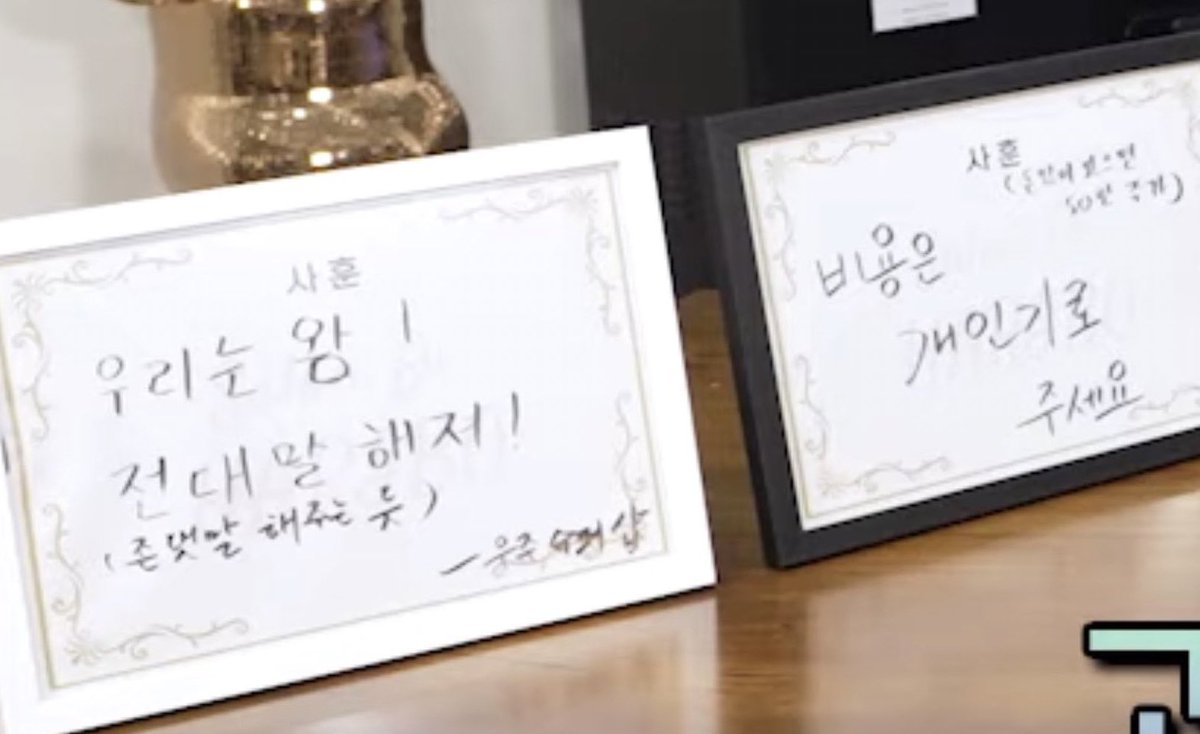 사훈
우리는 왕!
전대말 해저!
(존댓말 해주는 듯)
사훈
50만 추가)
비용은
개인기로
주세요